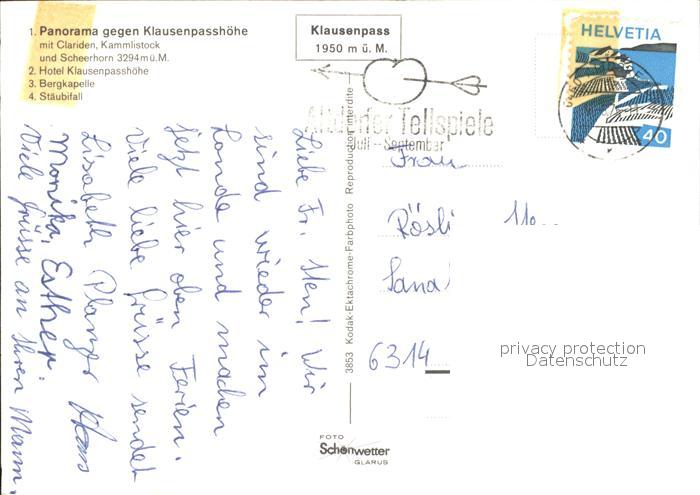 1. Panorama gegen Klausenpasshöhe
mit Clariden, Kammlistock
und Scheerhorn 3294 m ü. M.
2. Hotel Klausenpasshöhe
3. Bergkapelle
4. Stäubifall
Klausenpass
1950 m ü. M.
Altdorfer Tellspiele
Juli - September
HELVETIA
40
Liebe Fr. Wir
sind wieder im
Lande und machen
jetzt hier oben Ferien.
Viele liebe Grüsse sendet
Lisabeth Planzer Hans
Monika, Esther.
Viele Grüsse an Ihren Mann.
3853 Kodak-Ektachrome-Farbphoto Reproduction interdite
Frau
Rösli
Sana
6314
privacy protection
Datenschutz
FOTO
Schönwetter
GLARUS